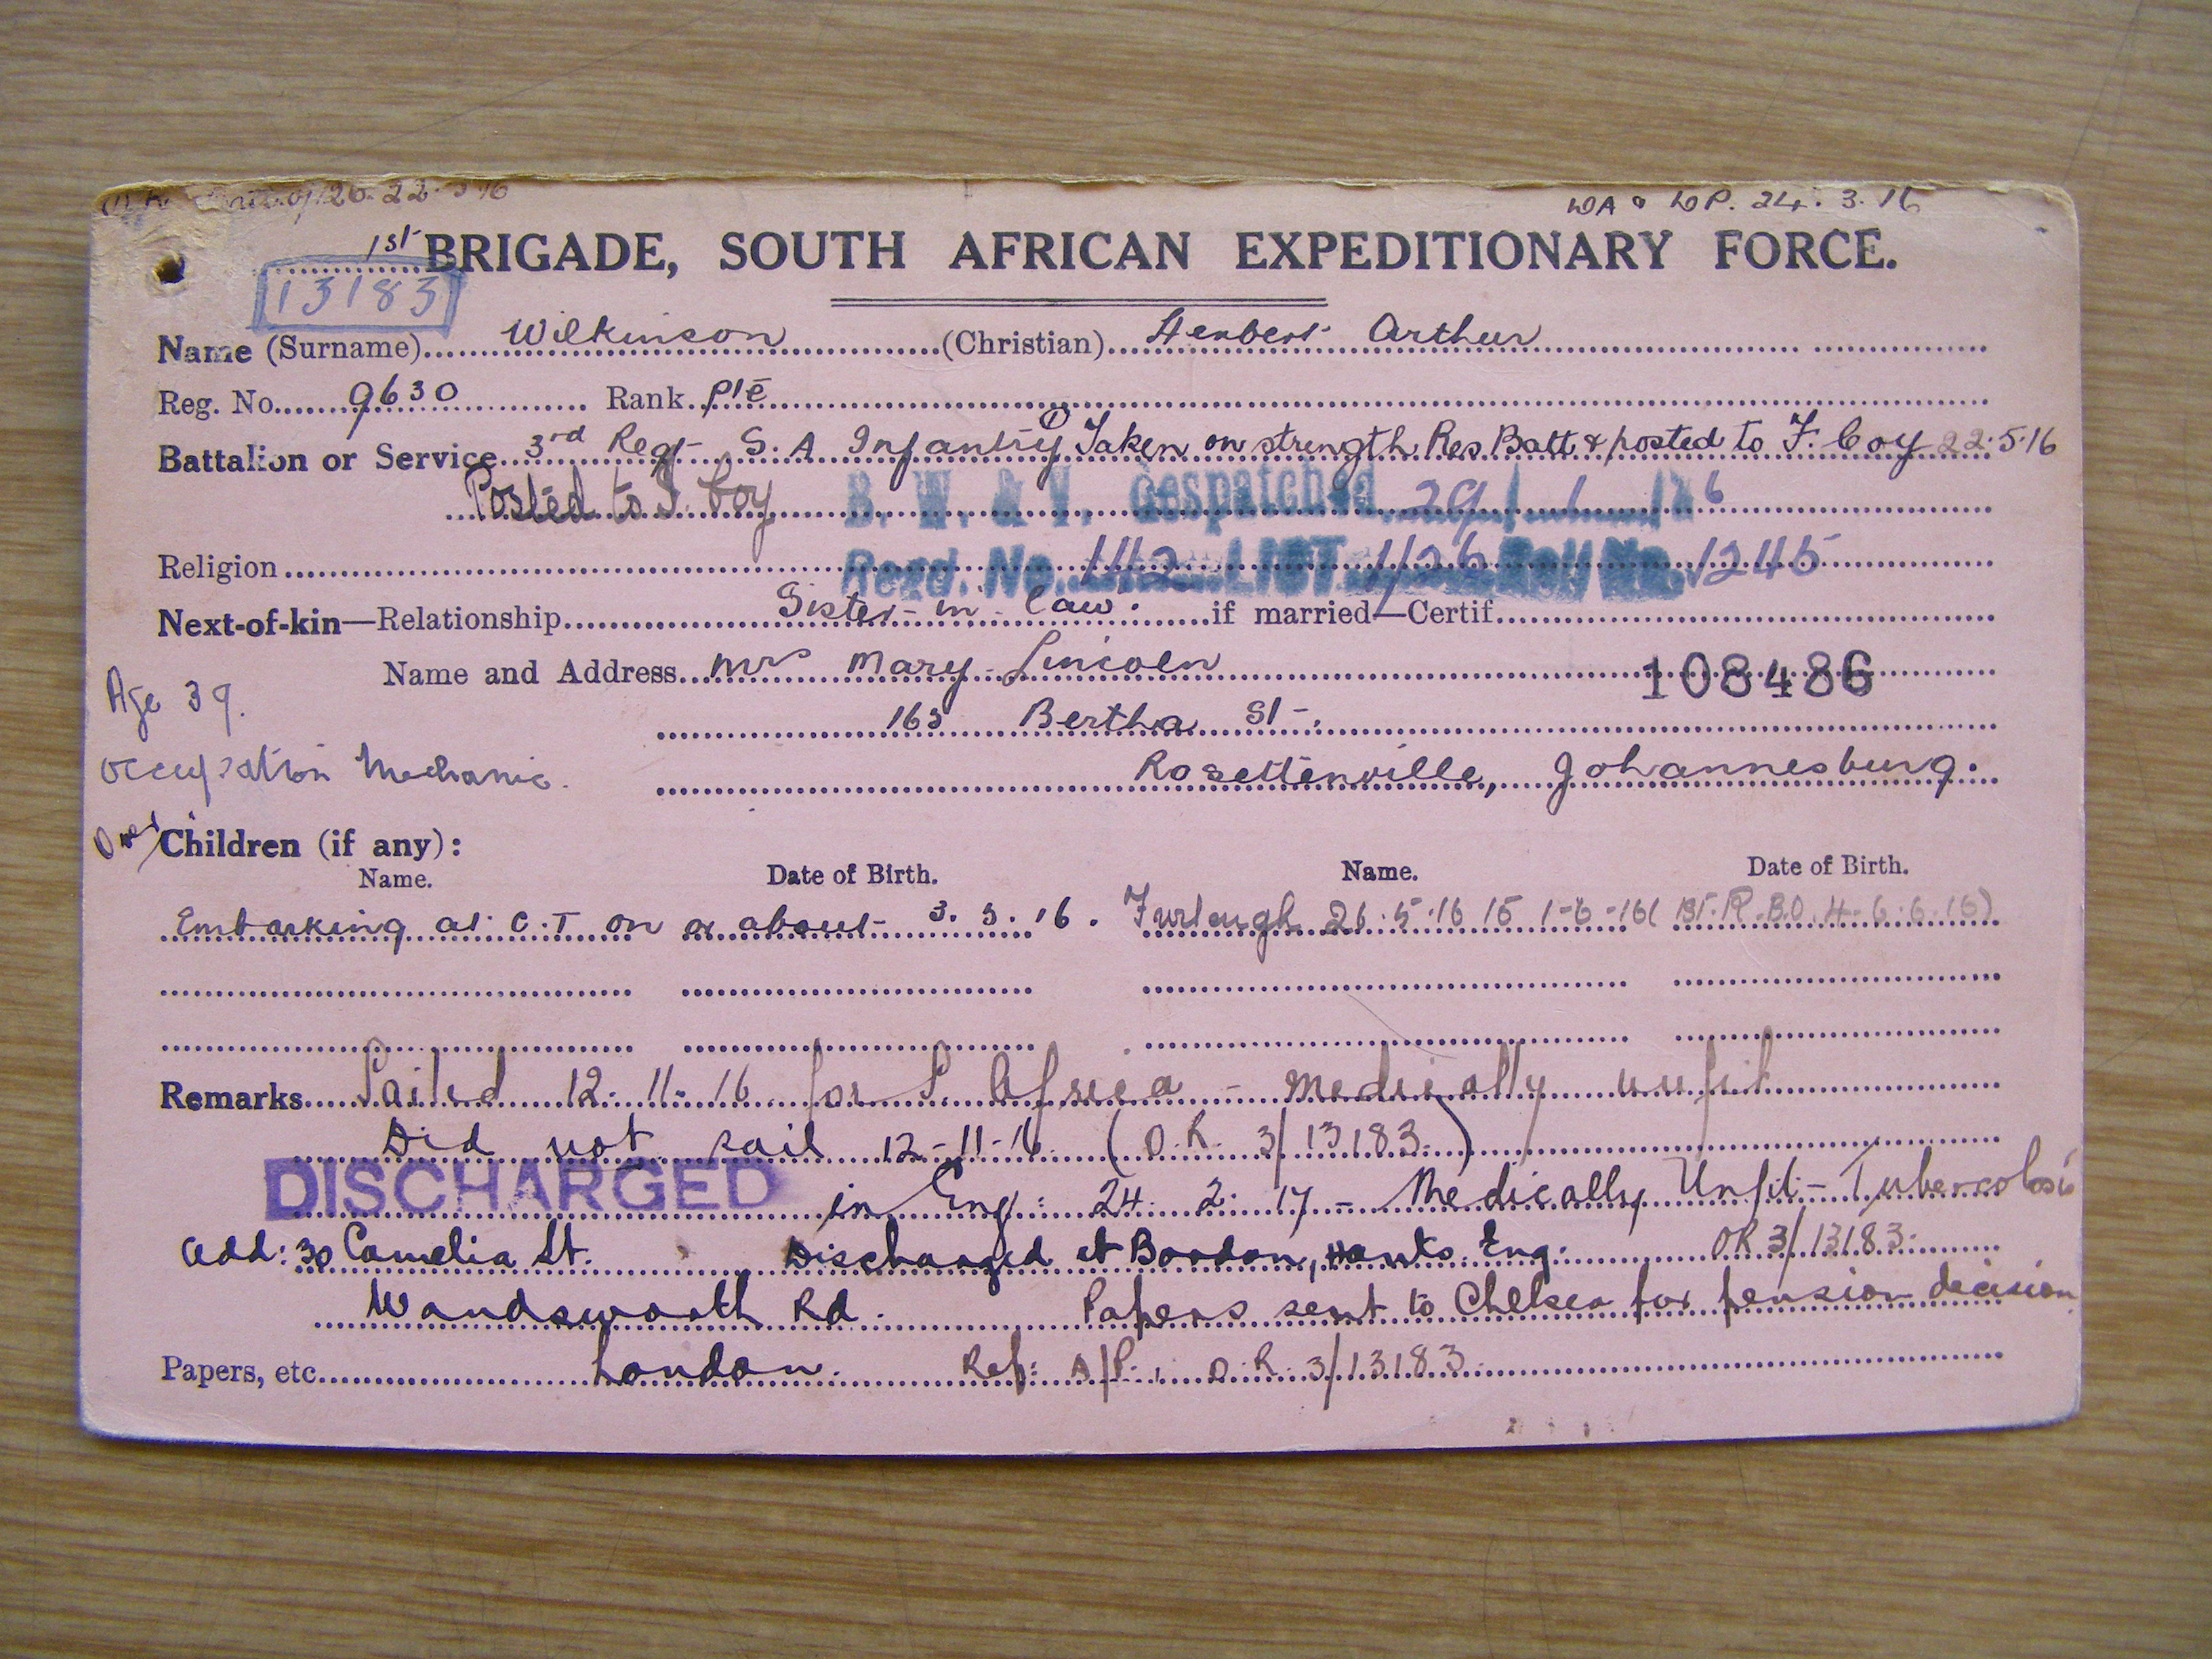 22. 3 16
WA & WP. 24. 3. 16
1st BRIGADE, SOUTH AFRICAN EXPEDITIONARY FORCE.
13183
Name (Surname) Wilkinson (Christian) Herbert Arthur
Reg. No. 9630 Rank Pte
Battalion or Service 3rd Regt S. A Infantry (1) Taken on strength Res Batt & posted to F. Coy 22.5.16
Posted to Coy B. W. & V. despatched 29/1/
Regd. No. 142 LIST 1/26 Roll No. 1245
Religion
Next-of-kin—Relationship Sister-in-law. if married—Certif.
Name and Address Mrs Mary Lincoln
108486
Age 39.
163 Bertha St.
Occupation Mechanic.
Rosettenville, Johannesburg.
Children (if any):
Name. Date of Birth. Name. Date of Birth.
Embarking at C.T on or about 3. 3. 16. Furlough 26.5.16 to 1-6-16 ( R.B.O. 4-6.6.16)
Remarks Sailed 12-11-16 for S. Africa - medically unfit
Did not sail 12-11-16 (O.R. 3/13183.)
DISCHARGED in Eng: 24. 2. 17 - Medically Unfit - Tubercolosis
Add: 30 Camelia St. Discharged at Bordon, Hants Eng. OR 3/13183.
Wandsworth Rd. Papers sent to Chelsea for pension decision
Papers, etc. London. Ref: A/P., O.R. 3/13183.